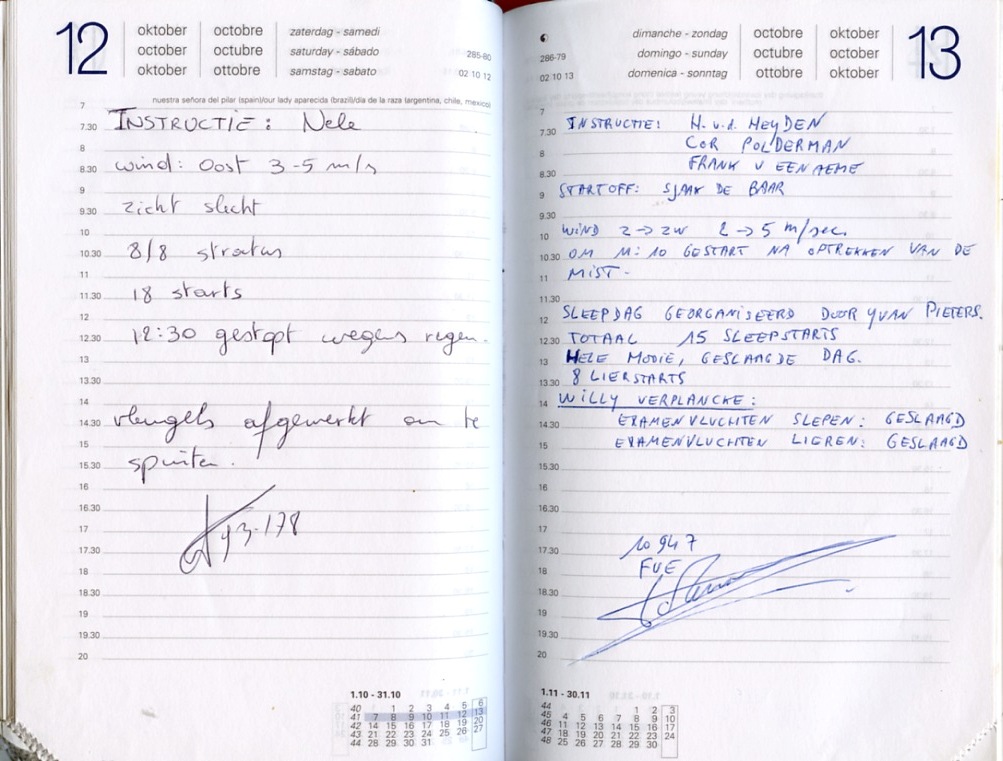 12
oktober octobre zaterdag - samedi
october octubre saturday - sábado
oktober ottobre samstag - sabato
285-80
02 10 12
nuestra señora del pilar (spain)/our lady aparecida (brazil)/día de la raza (argentina, chile, mexico)
7
7.30 INSTRUCTIE: Nele
8
8.30 wind: Oost 3-5 m/s
9
9.30 zicht slecht
10
10.30 8/8 stratus
11
11.30 18 starts
12
12.30 12:30 gestopt wegens regen.
13
13.30
14
14.30 vleugels afgewerkt om te
15
15.30 spuiten.
16
16.30
17 93-178
17.30
18
18.30
19
19.30
20
1.10 - 31.10
40 1 2 3 4 5 6
41 7 8 9 10 11 12 13
42 14 15 16 17 18 19 20
43 21 22 23 24 25 26 27
44 28 29 30 31
dimanche - zondag octobre oktober
domingo - sunday octubre october
domenica - sonntag ottobre oktober
13
286-79
02 10 13
7
7.30 INSTRUCTIE: H. v.d. HEYDEN
COR POLDERMAN
8
FRANK V EENAEME
8.30
9 STARTOFF: SJAAK DE BAAR
9.30
10 WIND Z → ZW 2 → 5 m/sec.
10.30 OM 11:10 GESTART NA OPTREKKEN VAN DE
11 MIST.
11.30
12 SLEEPDAG GEORGANISEERD DOOR YVAN PIETERS.
12.30 TOTAAL 15 SLEEPSTARTS
13 HELE MOOIE, GESLAAGDE DAG.
13.30 8 LIERSTARTS
14 WILLY VERPLANCKE:
14.30 EXAMENVLUCHTEN SLEPEN: GESLAAGD
15 EXAMENVLUCHTEN LIEREN: GESLAAGD
15.30
16
16.30
17
17.30 10947
18 FVE
18.30
19
19.30
20
1.11 - 30.11
44 1 2 3
45 4 5 6 7 8 9 10
46 11 12 13 14 15 16 17
47 18 19 20 21 22 23 24
48 25 26 27 28 29 30